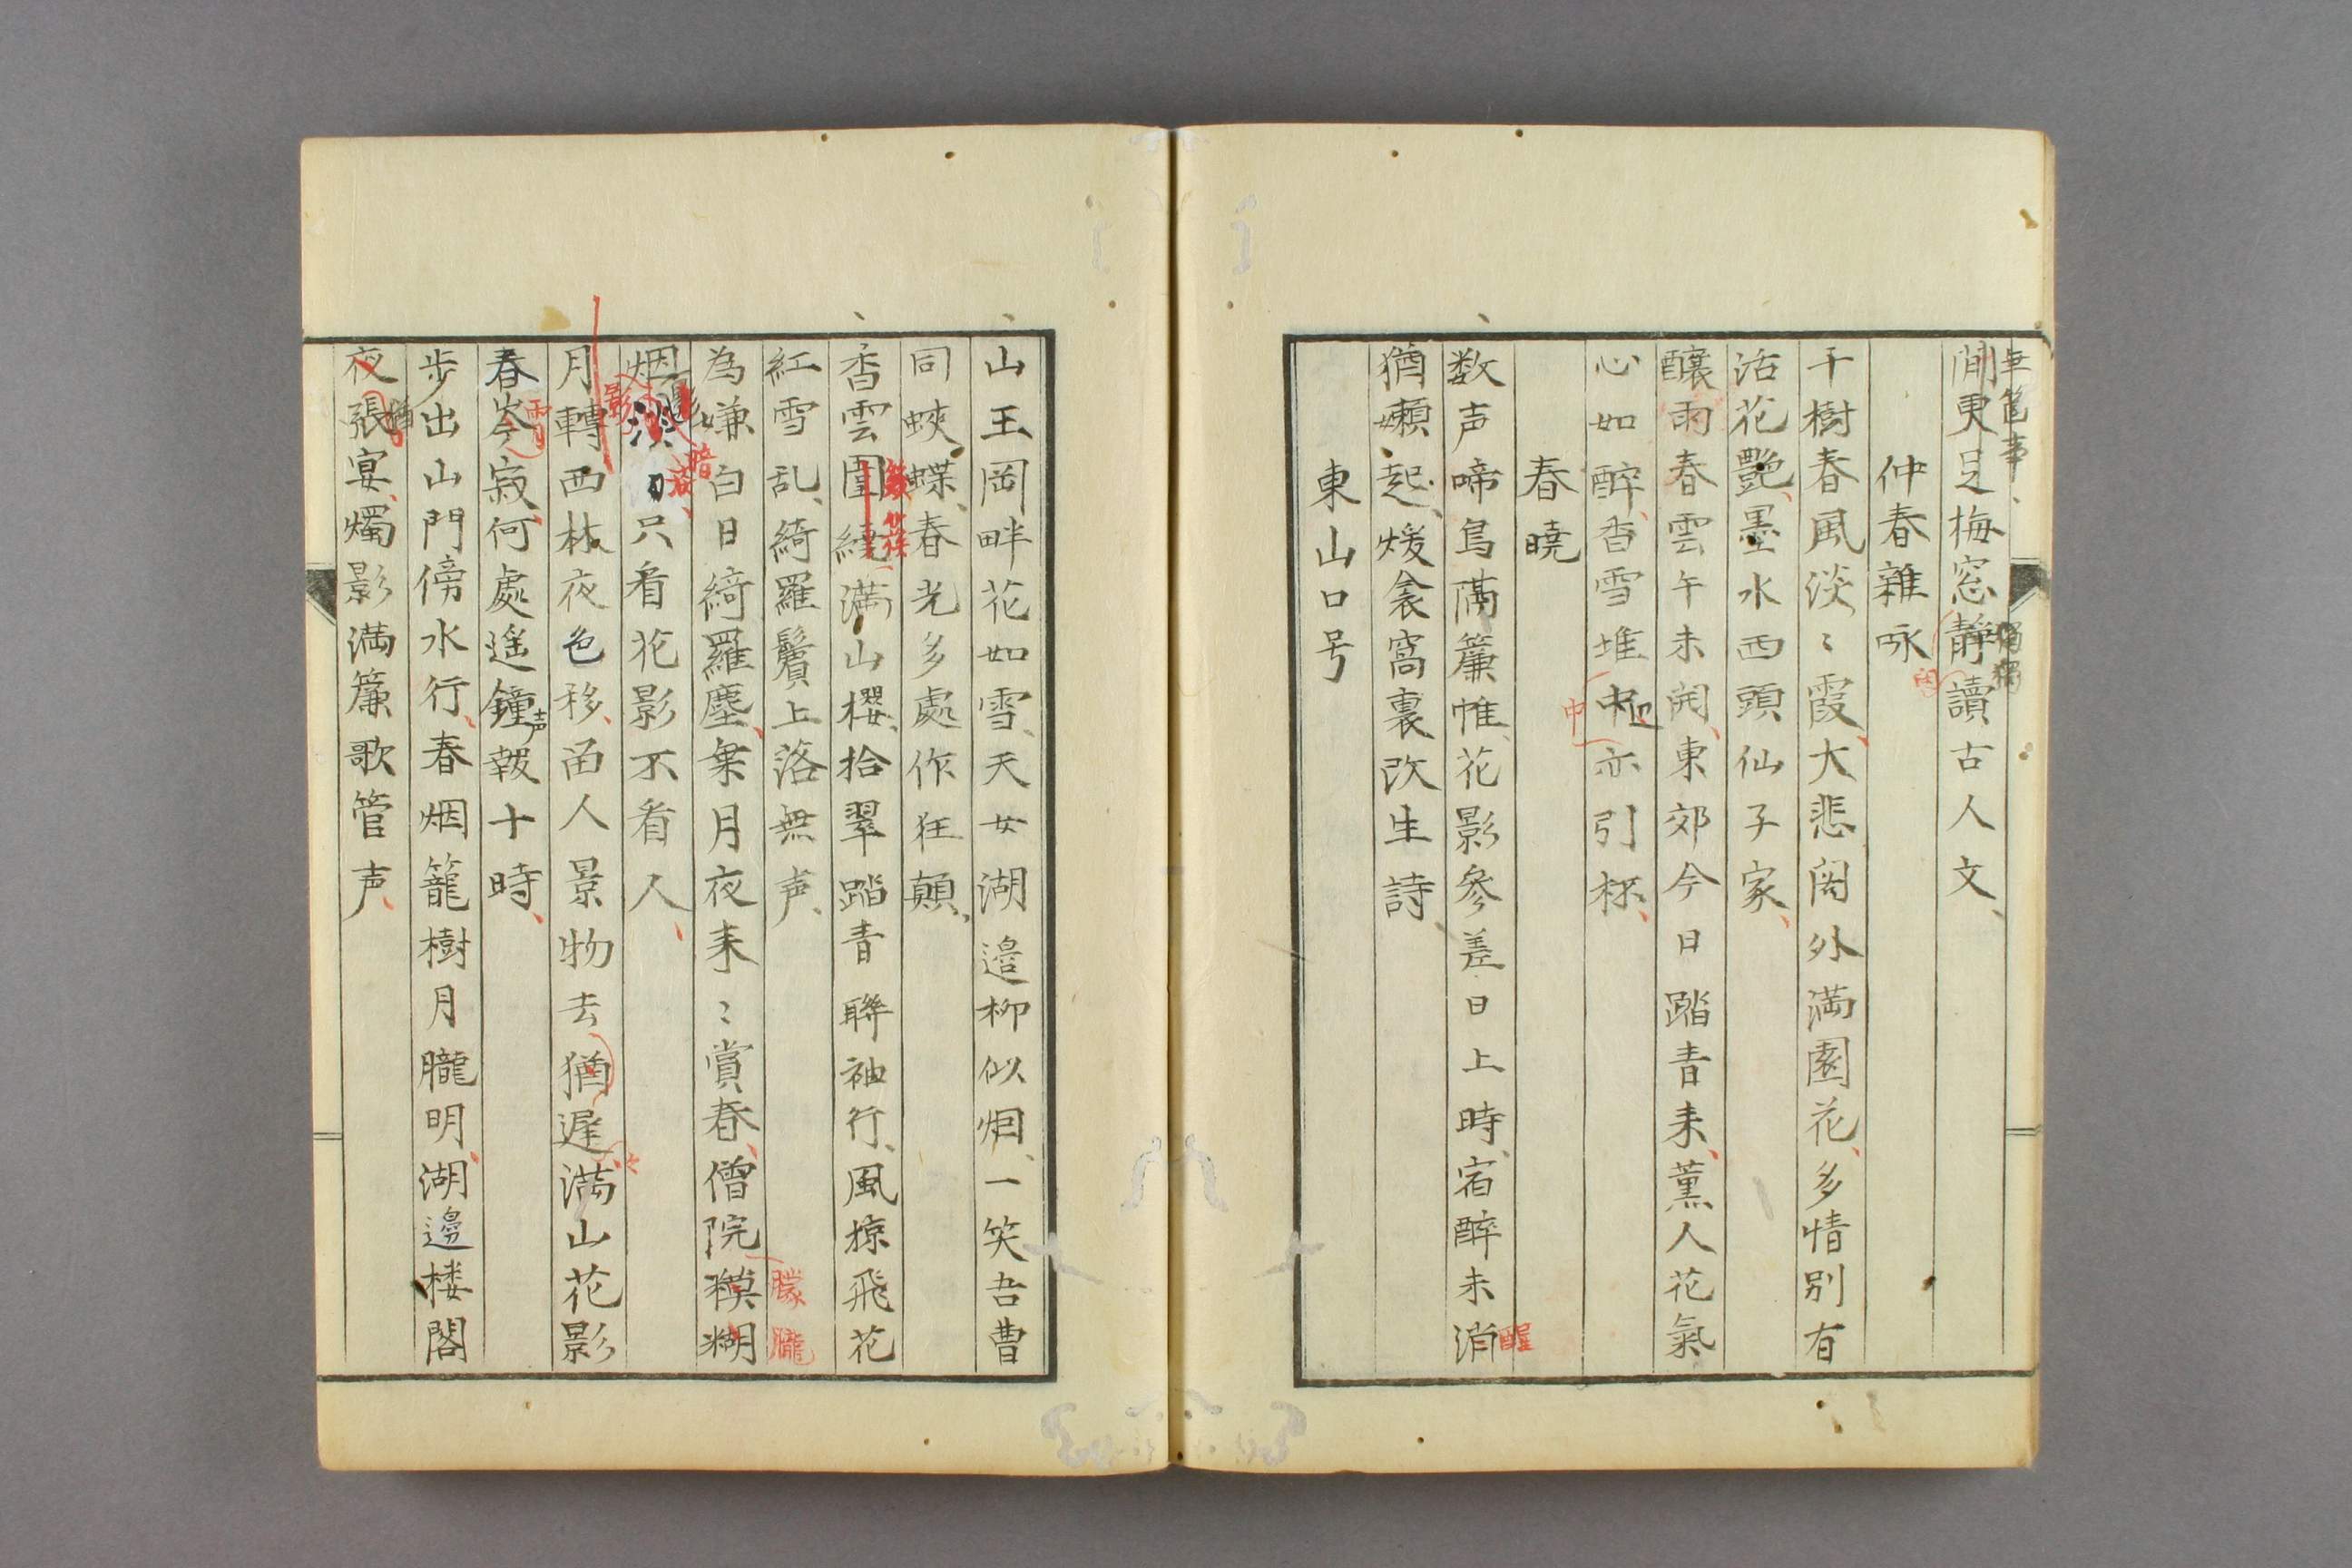 間更足梅窓靜讀古人文
仲春雜咏
千樹春風淡〻霞大悲閣外満園花多情別有
活花艷墨水西頭仙子家
釀雨春雲午未開東郊今日踏青来薫人花氣
心如醉香雪堆中亦引杯
中
春曉
数声啼鳥隔簾帷花影參差日上時宿醉未消
醒
猶嬾起煖衾窩裏改生詩
東山口号
山王岡畔花如雪天女湖邉柳似烟一笑吾曹
同蛺蝶春光多處作狂顛
香雲圍繞満山櫻拾翠踏青聯袖行風掠飛花
簇
紅雪乱綺羅鬢上落無声
為嫌白日綺羅塵乗月夜来〻賞春僧院糢糊
朦朧
烟只看花影不看人
暗
影
月轉西林夜色移函人景物去猶遲満山花影
春岑寂何處遥鐘声報十時
雨
步出山門傍水行春烟籠樹月朧明湖邊楼閣
夜張宴燭影満簾歌管声